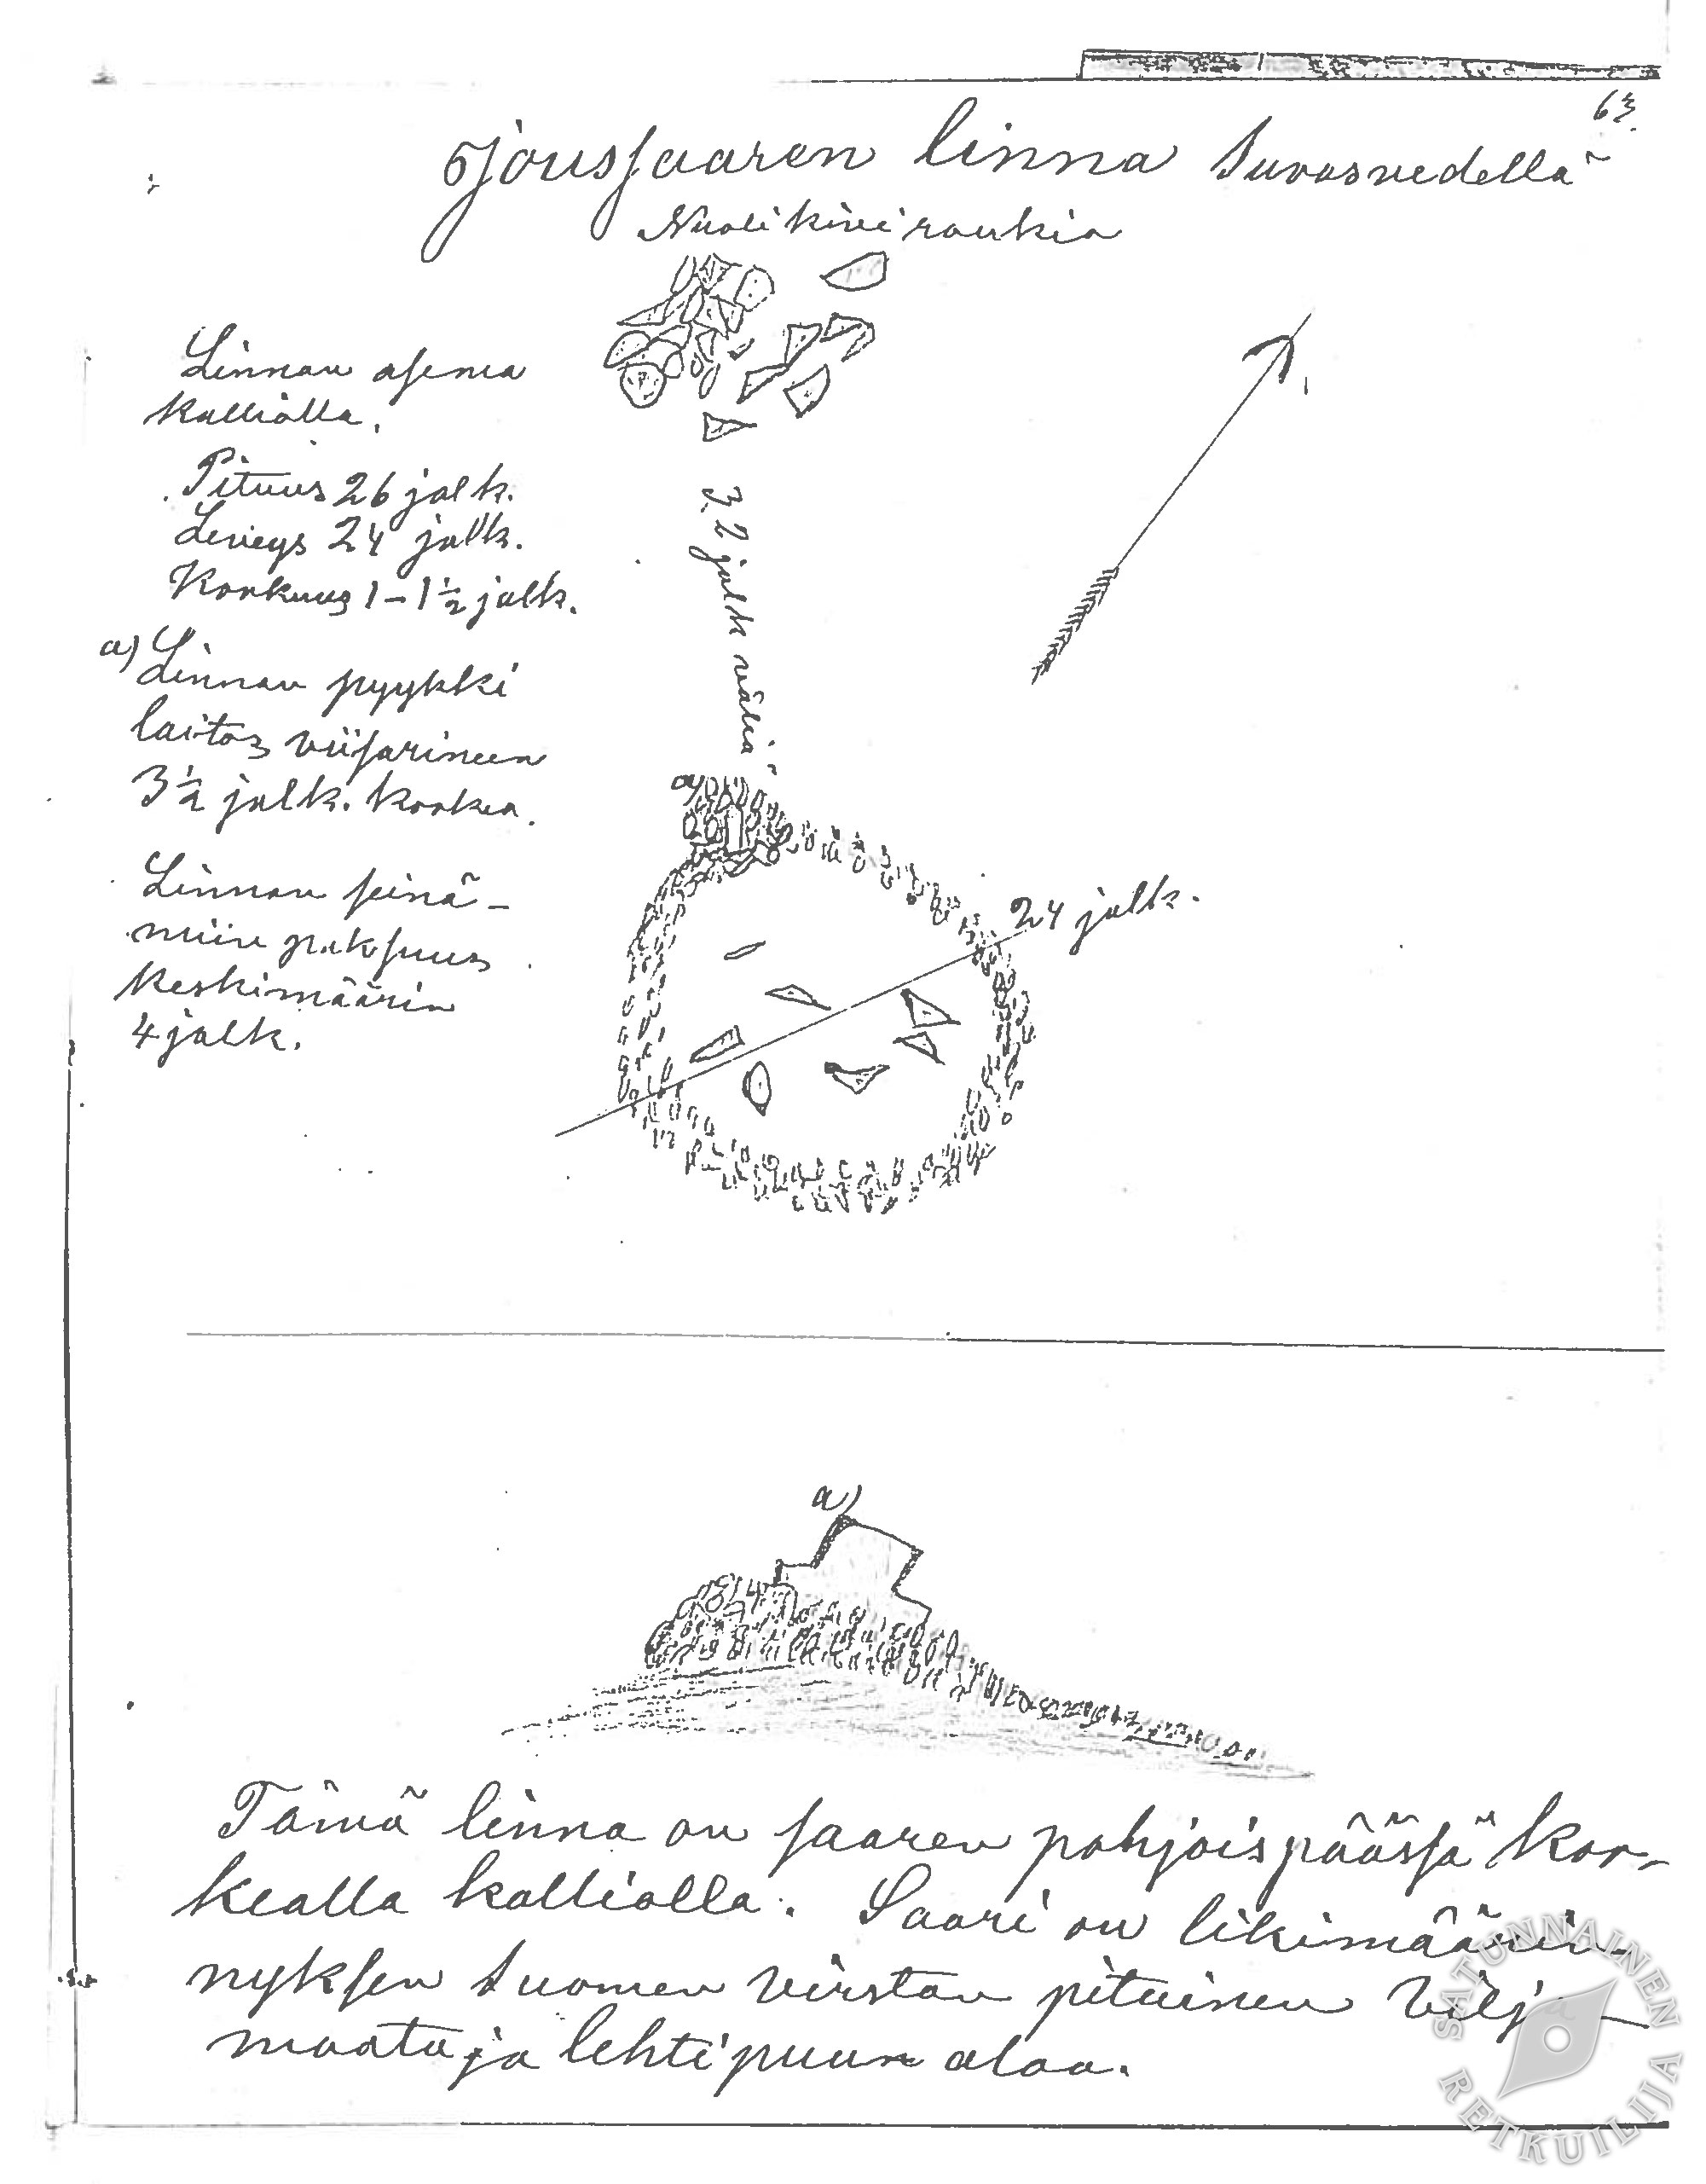 63.
Joussaaren linna Suvasvedellä
Nuolikiviraukio
Linnan asema
kalliolla.
Pituus 26 jalk.
Leveys 24 jalk.
Korkuus 1-1½ jalk.
a) Linnan pyykki
laitos viisarineen
3½ jalk. korkea.
Linnan seinä-
miin paksuus
keskimäärin
4 jalk.
32 jalk väliä
a)
24 jalk.
a)
Tämä linna on saaren pohjoispäässä kor-
kealla kalliolla. Saari on likimäärin-
nyksen Suomen virstan pituinen vilja-
maata ja lehtipuun alaa.
SATUNNAINEN
RETKUILIJA